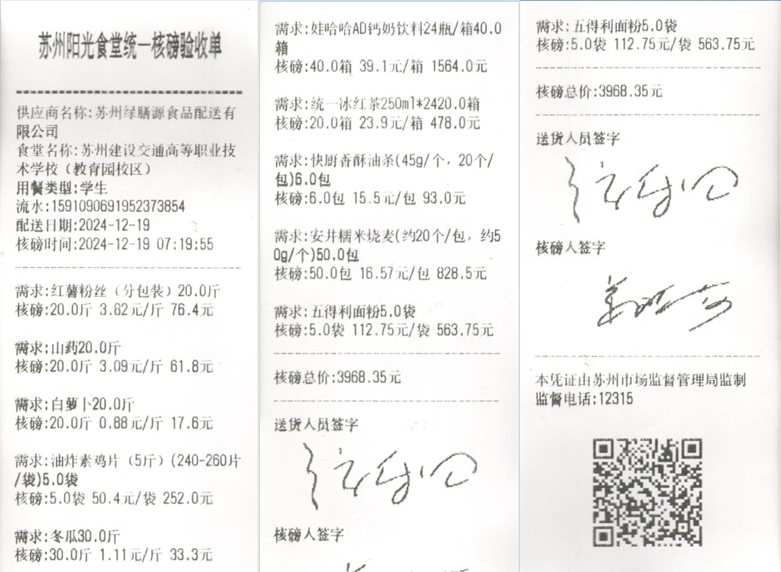 苏州阳光食堂统一核磅验收单
供应商名称:苏州绿膳源食品配送有
限公司
食堂名称:苏州建设交通高等职业技
术学校（教育园校区）
用餐类型:学生
流水:1591090691952373854
配送日期:2024-12-19
核磅时间:2024-12-19 07:19:55
需求:红薯粉丝（分包装）20.0斤
核磅:20.0斤 3.82元/斤 76.4元
需求:山药20.0斤
核磅:20.0斤 3.09元/斤 61.8元
需求:白萝卜20.0斤
核磅:20.0斤 0.88元/斤 17.6元
需求:油炸素鸡片（5斤）(240-260片
/袋)5.0袋
核磅:5.0袋 50.4元/袋 252.0元
需求:冬瓜30.0斤
核磅:30.0斤 1.11元/斤 33.3元
需求:娃哈哈AD钙奶饮料24瓶/箱40.0
箱
核磅:40.0箱 39.1元/箱 1564.0元
需求:统一冰红茶250ml*2420.0箱
核磅:20.0箱 23.9元/箱 478.0元
需求:快厨香酥油条(45g/个，20个/
包)6.0包
核磅:6.0包 15.5元/包 93.0元
需求:安井糯米烧麦(约20个/包，约5
0g/个)50.0包
核磅:50.0包 16.57元/包 828.5元
需求:五得利面粉5.0袋
核磅:5.0袋 112.75元/袋 563.75元
核磅总价:3968.35元
送货人员签字
核磅人签字
需求:五得利面粉5.0袋
核磅:5.0袋 112.75元/袋 563.75元
核磅总价:3968.35元
送货人员签字
核磅人签字
本凭证由苏州市场监督管理局监制
监督电话:12315